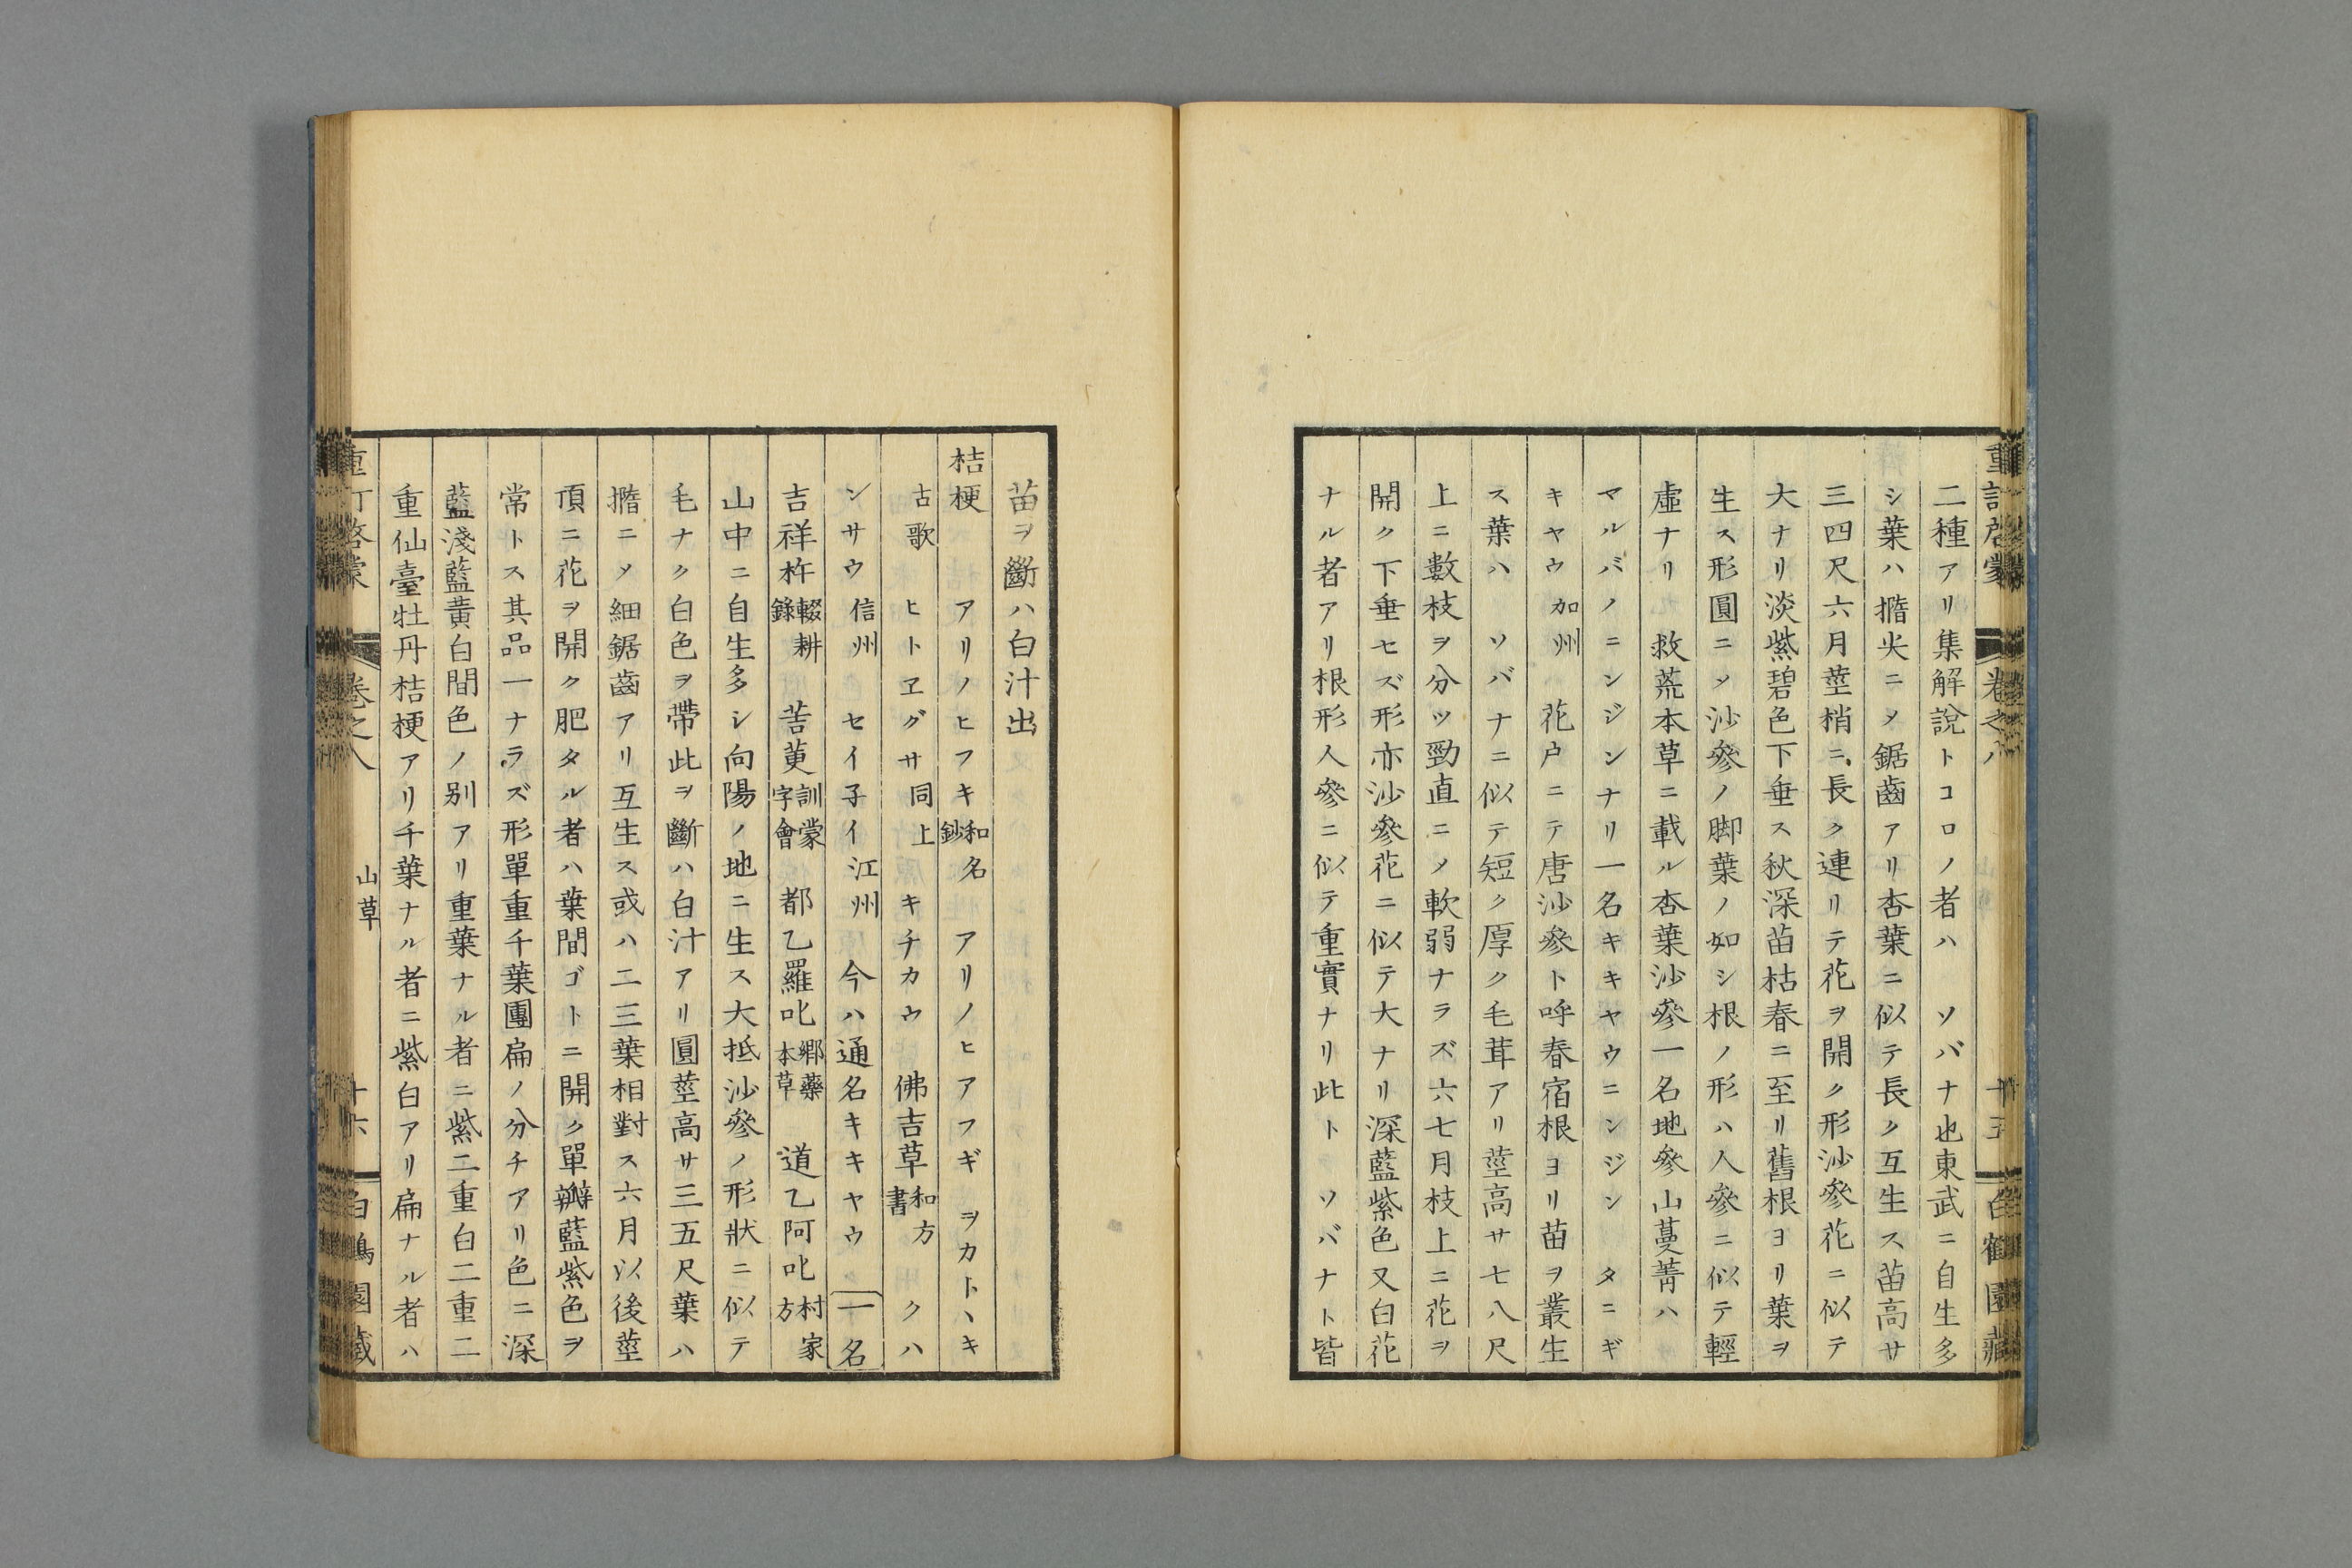 重訂啓蒙 卷之八 十五 白鶴園藏
二種アリ集解說トコロノ者ハ ソバナ也東武ニ自生多
シ葉ハ㨗尖ニ〆鋸齒アリ杏葉ニ似テ長ク互生ス苗高サ
三四尺六月莖梢ニ長ク連リテ花ヲ開ク形沙參花ニ似テ
大ナリ淡紫碧色下垂ス秋深苗枯春ニ至リ舊根ヨリ葉ヲ
生ス形圓ニ〆沙參ノ脚葉ノ如シ根ノ形ハ人參ニ似テ輕
虛ナリ 救荒本草ニ載ル杏葉沙參一名地參山蔓菁ハ
マルバノニンジンナリ一名キキヤウニンジン タニギ
キヤウ加州 花戶ニテ唐沙參ト呼春宿根ヨリ苗ヲ叢生
ス葉ハ ソバナニ似テ短ク厚ク毛茸アリ莖高サ七八尺
上ニ數枝ヲ分ツ勁直ニ〆軟弱ナラズ六七月枝上ニ花ヲ
開ク下垂セズ形亦沙參花ニ似テ大ナリ深藍紫色又白花
ナル者アリ根形人參ニ似テ重實ナリ此ト ソバナト皆
苗ヲ斷ハ白汁出
桔梗 アリノヒフキ和名鈔 アリノヒアフギ ヲカトヽキ
古歌 ヒトヱグサ同上 キチカウ 佛吉草和方書 クハ
ンサウ信州 セイ子イ江州 今ハ通名キキヤウ 一名
吉祥杵輟耕錄 苦茰訓蒙字會 都乙羅叱鄉藥本草 道乙阿叱村家方
山中ニ自生多シ向陽ノ地ニ生ス大抵沙參ノ形狀ニ似テ
毛ナク白色ヲ帶此ヲ斷ハ白汁アリ圓莖高サ三五尺葉ハ
㨗ニ〆細鋸齒アリ互生ス或ハ二三葉相對ス六月以後莖
頂ニ花ヲ開ク肥タル者ハ葉間ゴトニ開ク單瓣藍紫色ヲ
常トス其品一ナラズ形單重千葉團扁ノ分チアリ色ニ深
藍淺藍黃白間色ノ別アリ重葉ナル者ニ紫二重白二重二
重仙臺牡丹桔梗アリ千葉ナル者ニ紫白アリ扁ナル者ハ
重訂啓蒙 卷之八 山草 十六 白鶴園藏